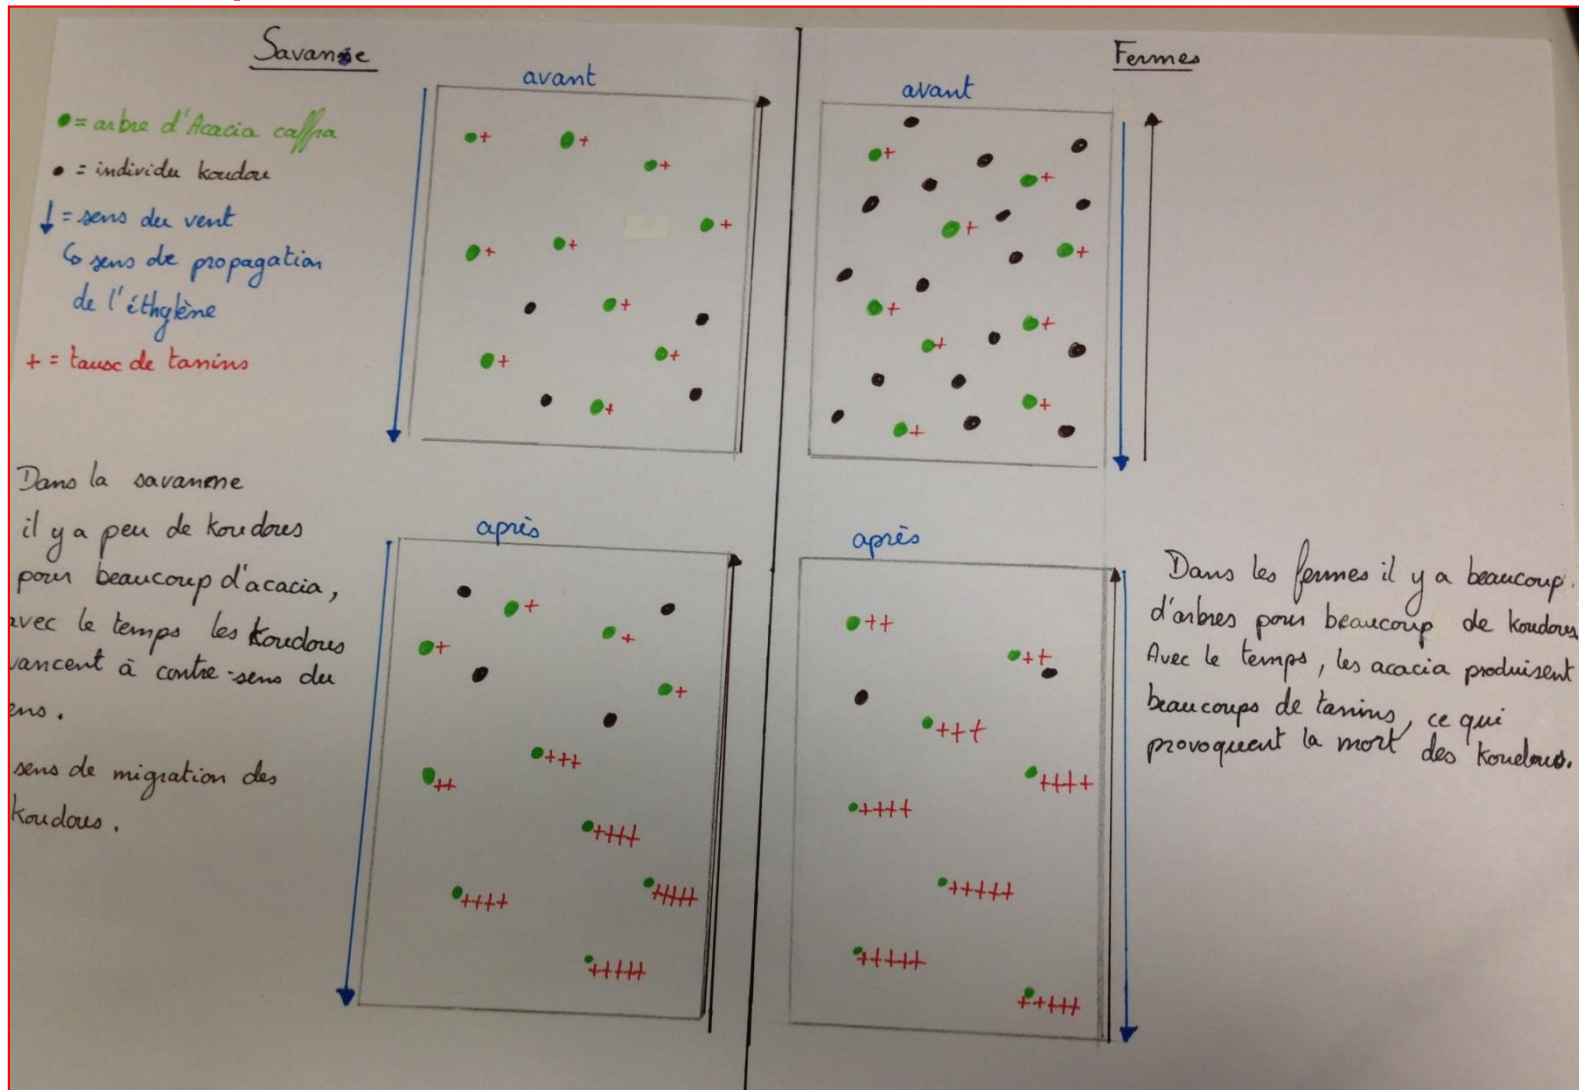 Savanne
Fermes
avant
avant
• = arbre d'Acacia caffra
• = individu koudou
↓ = sens du vent
↳ sens de propagation
de l'éthylène
+ = taux de tanins
Dans la savanne
il y a peu de koudous
pour beaucoup d'acacia,
avec le temps les koudous
vancent à contre-sens du
ens.
sens de migration des
koudous.
après
après
Dans les fermes il y a beaucoup
d'arbres pour beaucoup de koudous
Avec le temps, les acacia produisent
beaucoups de tanins, ce qui
provoquent la mort des koudous.